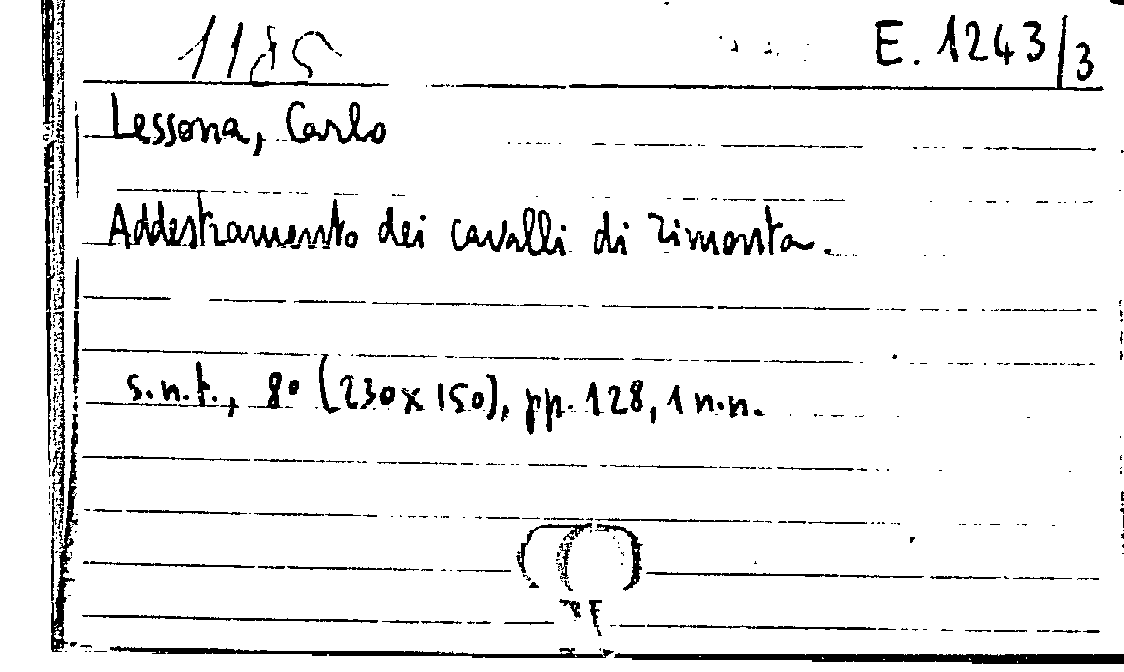 1185 E. 1243/3
Lessona, Carlo
Addestramento dei cavalli di rimonta.
s.n.t., 8° (230x150), pp. 128, 1 n.n.